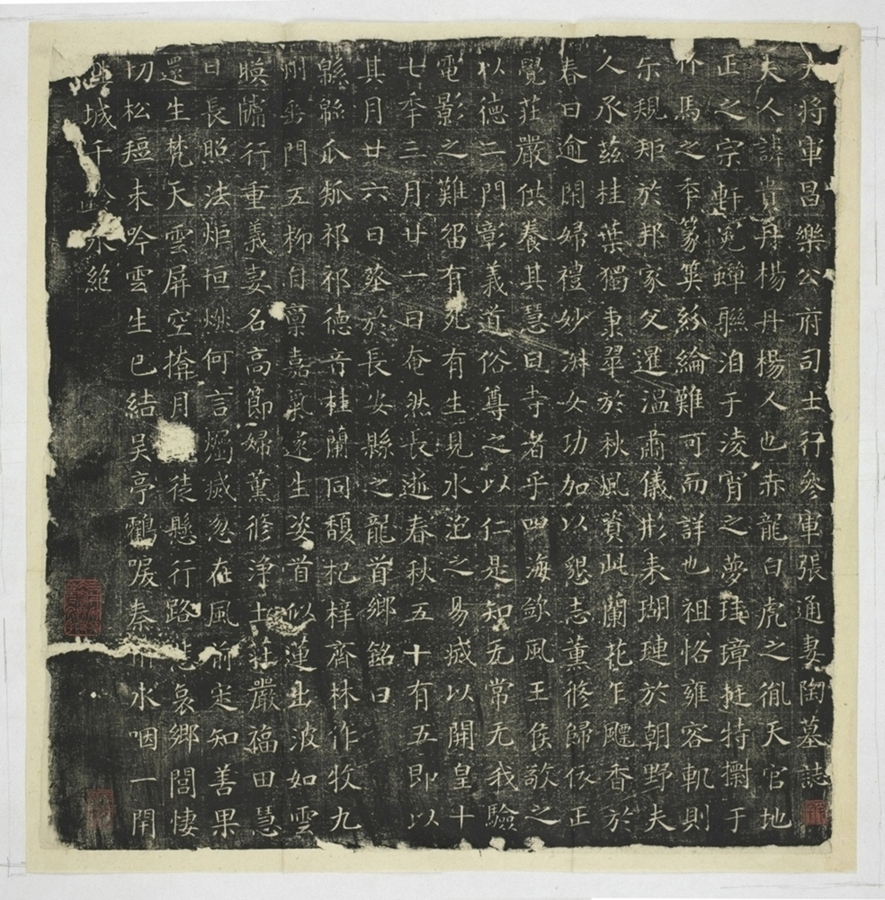 大將軍昌樂公府司士行參軍張通妻陶墓誌
夫人諱貴丹楊丹楊人也赤龍白虎之胤天官地
正之宗軒冕蟬聯洎于淩宵之夢珪璋挺特擅于
竹馬之年篆筴紛綸難可而詳也祖恪雍容軌則
尔規矩於邦家父暹溫肅儀形表瑚璉於朝野夫
人承茲桂葉獨秉翠於秋風資此蘭花乍飄香於
春日逾閑婦禮妙淋女功加以懇志薰修歸依正
覺莊嚴供養其慧日寺者乎四海欽風王侯歌之
以德二門彰義道俗尊之以仁是知无常无我驗
電影之難留有死有生見水泡之易滅以開皇十
七年三月廿一日奄然長逝春秋五十有五即以
其月廿六日葬於長安縣之龍首鄉銘曰
緜緜瓜瓞祁祁德音桂蘭同馥杞梓齊林作牧九
州垂門五柳自稟嘉氣遂生姿首似蓮出波如雲
暎牖行重義妻名高節婦薰修淨土莊嚴福田慧
日長照法炬恒燃何言燭滅忽在風前定知善果
還生梵天雲屏空掩月徒懸行路悲哀鄉閭悽
切松槚未吟雲生已結吴亭鶴唳秦水咽一閇
城千永絕